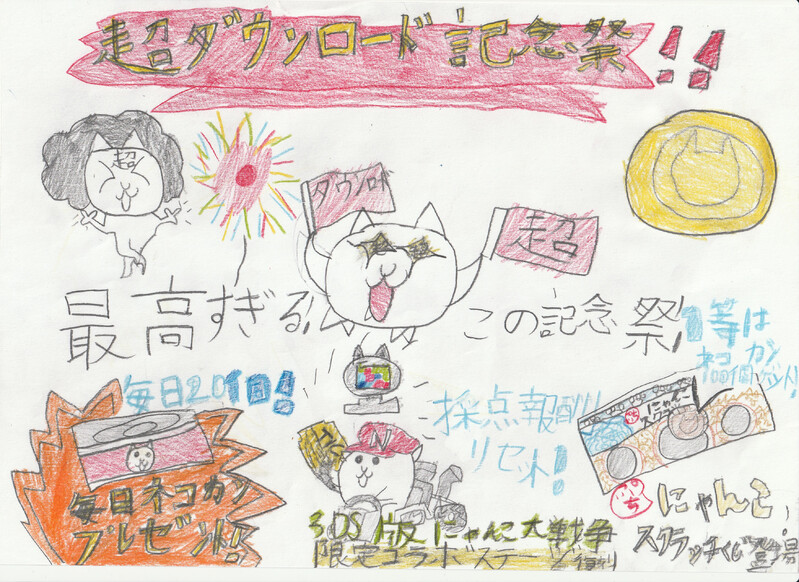 超ダウンロード記念祭!!
超
ダウンロド
超
最高すぎる!この記念祭!
1等は
ネコカン
100個ゲット!
毎日20個!
採点報酬
リセット!
にゃんこ
N
毎日ネコカン
プレゼント!
3DS版にゃんこ大戦争
限定コラボステージ復刻
ぷち
にゃんこ
スクラッチくじ登場